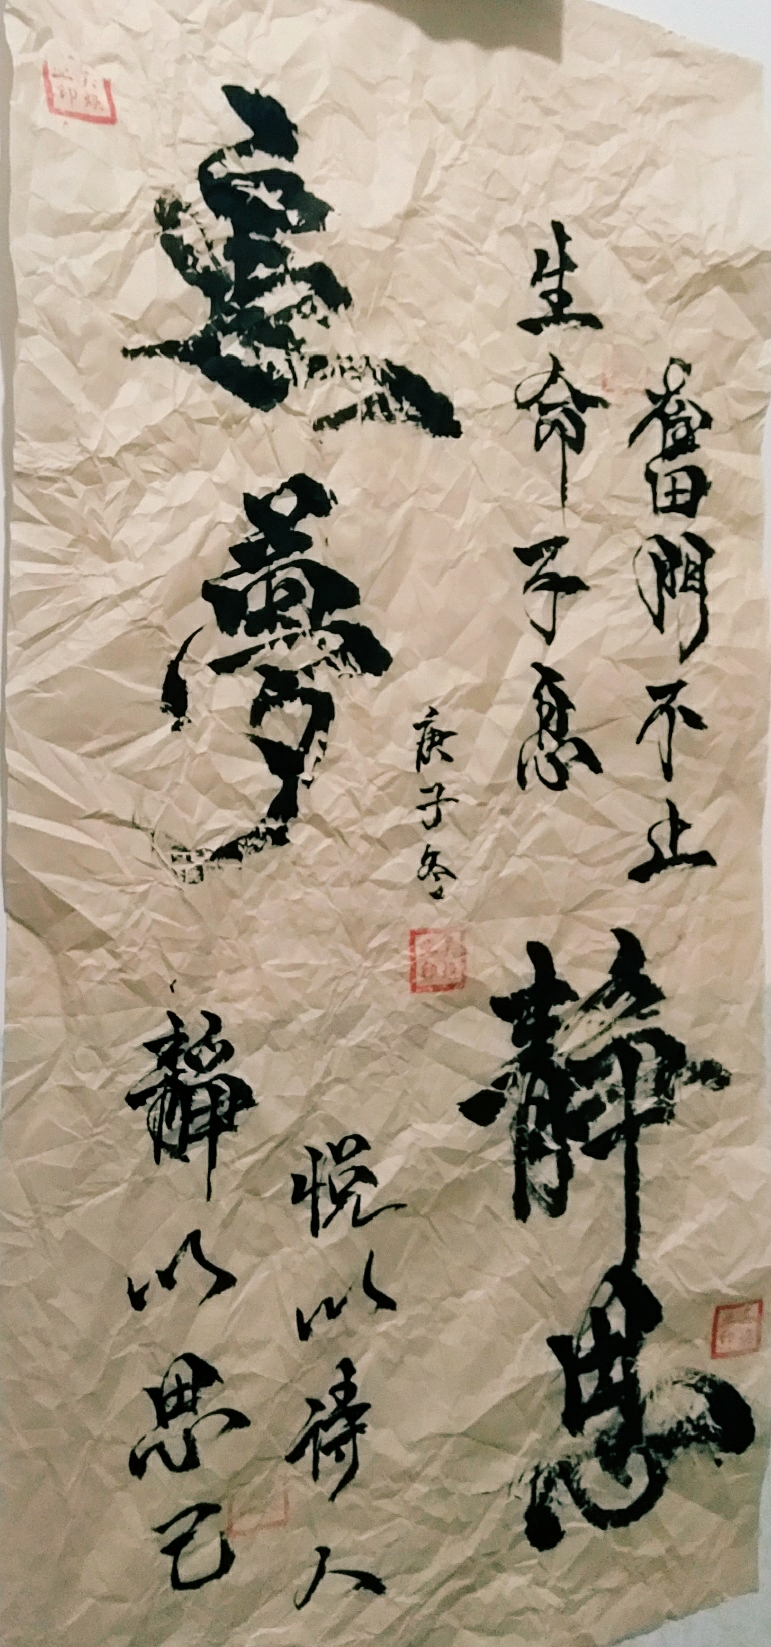 奮鬥不止
生命不息
靜思
庚子冬
追夢
悦以待人
靜以思己